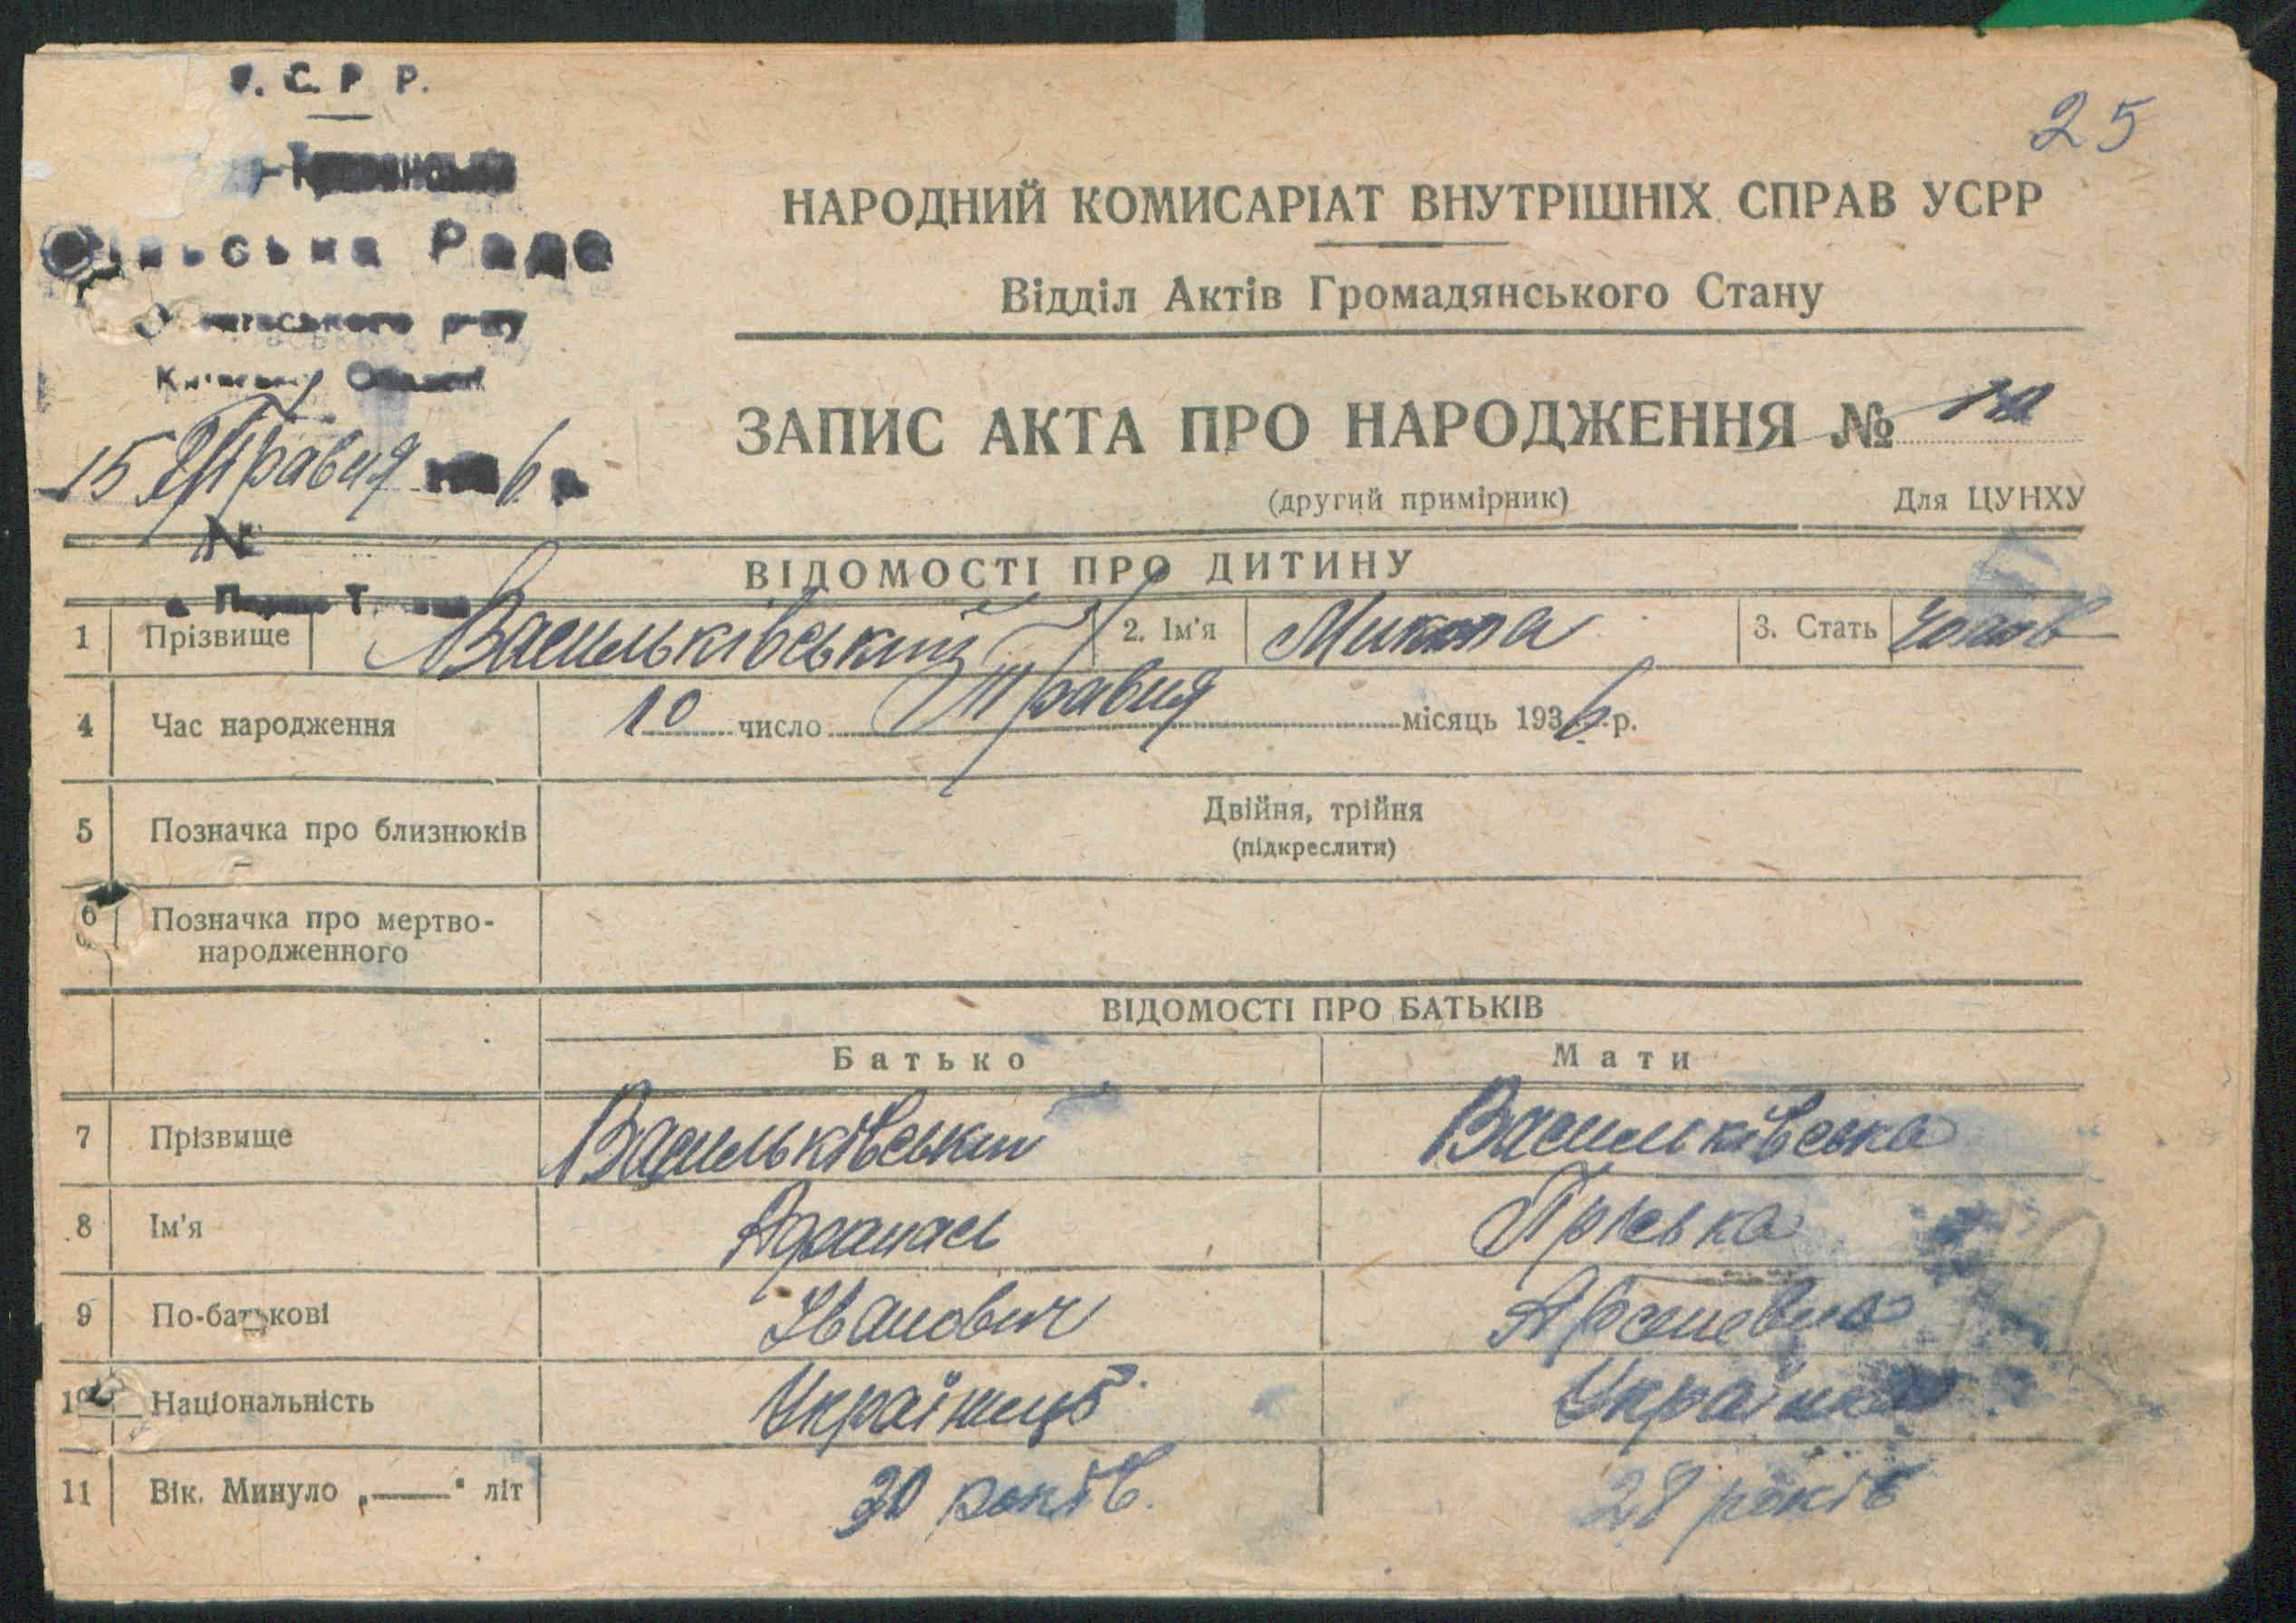 У. С. Р. Р.
25
Сільська Рада
р-ну
Київської Області
НАРОДНИЙ КОМИСАРІАТ ВНУТРІШНІХ СПРАВ УСРР
Відділ Актів Громадянського Стану
ЗАПИС АКТА ПРО НАРОДЖЕННЯ №
15 Травня 6 р.
(другий примірник) Для ЦУНХУ
№
ВІДОМОСТІ ПРО ДИТИНУ
1 Прізвище Васильківський 2. Ім'я Микола 3. Стать Чолов
4 Час народження 10 число Травня місяць 1936 р.
5 Позначка про близнюків Двійня, трійня
(підкреслити)
6 Позначка про мертво-
народженного
ВІДОМОСТІ ПРО БАТЬКІВ
Батько Мати
7 Прізвище Васильківський Васильківська
8 Ім'я Афанась Пріська
9 По-батькові Іванович Арсенєвна
10 Національність Українець Українка
11 Вік. Минуло „—" літ 30 років. 28 років